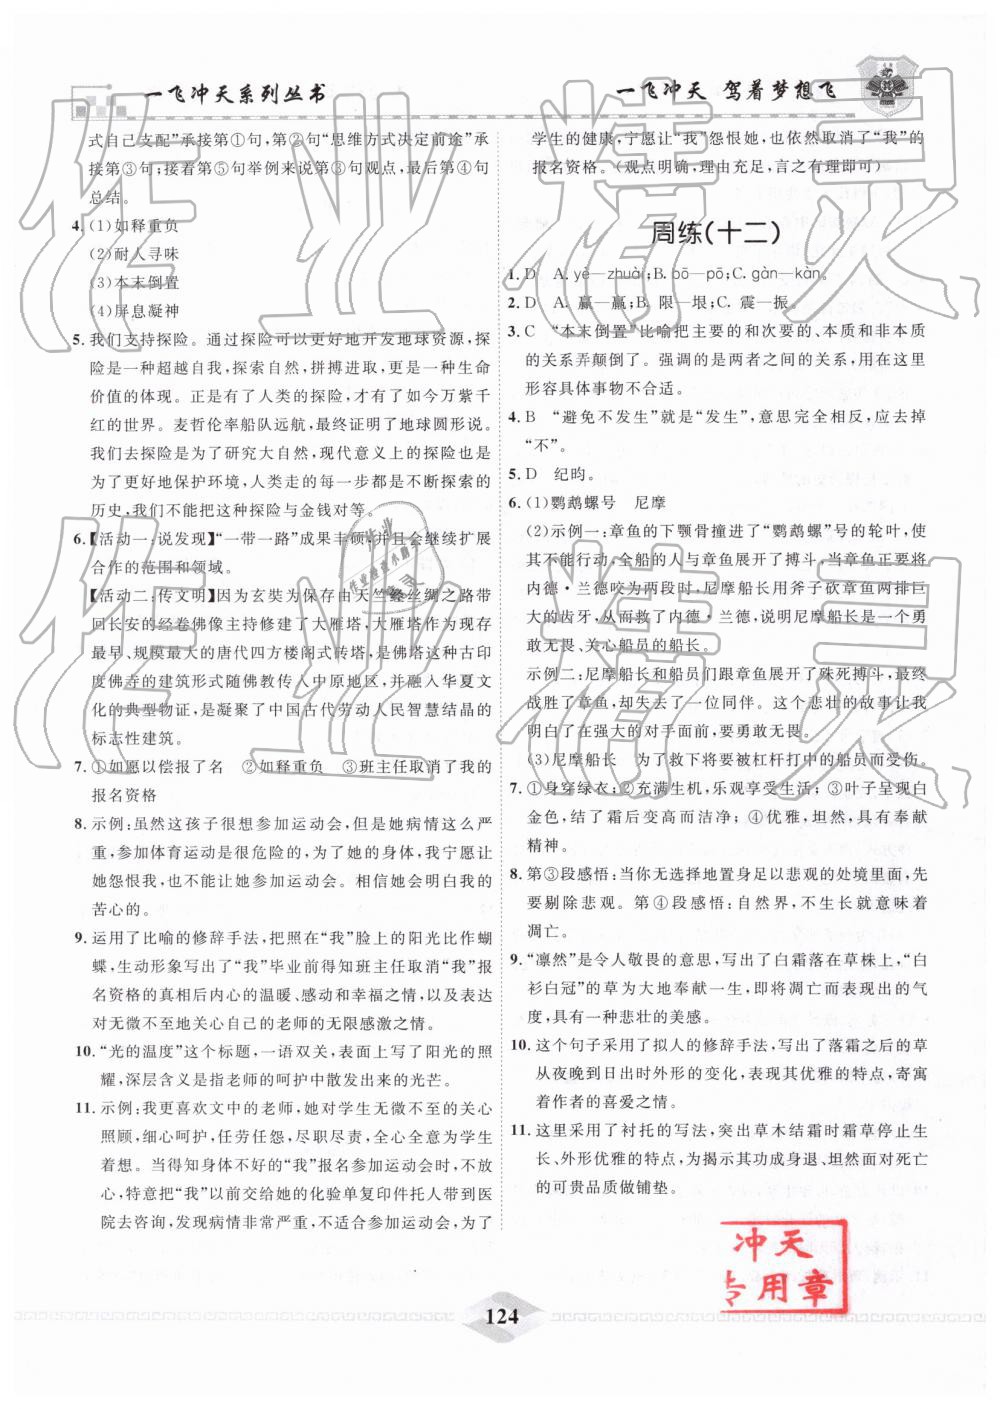 一飞冲天系列丛书
一飞冲天 驾着梦想飞
式自己支配”承接第①句,第②句“思维方式决定前途”承
接第③句;接着第⑤句举例来说第③句观点,最后第④句
总结。
4. (1)如释重负
(2)耐人寻味
(3)本末倒置
(4)屏息凝神
5. 我们支持探险。通过探险可以更好地开发地球资源,探
险是一种超越自我,探索自然,拼搏进取,更是一种生命
价值的体现。正是有了人类的探险,才有了如今万紫千
红的世界。麦哲伦率船队远航,最终证明了地球圆形说。
我们去探险是为了研究大自然,现代工业的发展,探险也
是为了更好地保护环境,人类走的每一步都是不断探索的
历史,我们不能把这种探险与金钱对等。
6. 【活动一:说发现】“一带一路”成果丰硕,并且会继续扩展
合作的范围和领域。
【活动二:传文明】因为玄奘为保存由天竺经丝绸之路带
回长安的经卷佛像主持修建了大雁塔,大雁塔作为现存
最早、规模最大的唐代四方楼阁式砖塔,是佛塔这种古印
度佛寺的建筑形式随佛教传入中原地区,并融入华夏文
化的典型物证,是凝聚了中国古代劳动人民智慧结晶的
标志性建筑。
7. ①如愿以偿报了名 ②如释重负 ③班主任取消了我的
报名资格
8. 示例:虽然这孩子很想参加运动会,但是她病情这么严
重,参加体育运动是很危险的,为了她的身体,我宁愿让
她怨恨我,也不能让她参加运动会。相信她会明白我的
苦心的。
9. 运用了比喻的修辞手法,把照在“我”脸上的阳光比作蝴
蝶,生动形象写出了“我”毕业前得知班主任取消“我”报
名资格的真相后内心的温暖、感动和幸福之情,以及表达
对无微不至地关心自己的老师的无限感激之情。
10. “光的温度”这个标题,一语双关,表面上写了阳光的照
耀,深层含义是指老师的呵护中散发出来的光芒。
11. 示例:我更喜欢文中的老师,她对学生无微不至的关心
照顾,细心呵护,任劳任怨,尽职尽责,全心全意为学生
着想。当得知身体不好的“我”报名参加运动会时,不放
心,特意把“我”以前交给她的化验单复印件托人带到医
院去咨询,发现病情非常严重,不适合参加运动会,为了
学生的健康,宁愿让“我”怨恨她,也依然取消了“我”的
报名资格。(观点明确,理由充足,言之有理即可)
周练(十二)
1. D A. yè—zhuài;B. bō—pō;C. gàn—kàn。
2. D A. 赢—赢;B. 限—垠;C. 震—振。
3. C “本末倒置”比喻把主要的和次要的、本质和非本质
的关系弄颠倒了。强调的是两者之间的关系,用在这里
形容具体事物不合适。
4. B “避免不发生”就是“发生”,意思完全相反,应去掉
“不”。
5. D 纪昀。
6. (1)鹦鹉螺号 尼摩
(2)示例一:章鱼的下颚骨撞进了“鹦鹉螺”号的轮叶,使
其不能行动,全船的人与章鱼展开了搏斗,当章鱼要将
内德·兰德咬为两段时,尼摩船长用斧子砍章鱼两排巨
大的齿牙,从而救了内德·兰德,说明尼摩船长是一位勇
敢无畏、关心船员的船长。
示例二:尼摩船长和船员们跟章鱼展开了殊死搏斗,最终
战胜了章鱼,却失去了一位同伴。这个悲壮的故事让我
明白了在强大的对手面前,要勇敢无畏。
(3)尼摩船长 为了救下将要被杠杆打中的船员而受伤。
7. ①身穿绿衣;②充满生机,乐观享受生活;③叶子呈现白
金色,结了霜后变高而洁净;④优雅,坦然,具有奉献
精神。
8. 第③段感悟:当你无选择地置身足以悲观的处境里面,先
要剔除悲观。第④段感悟:自然界,不生长就意味着
凋亡。
9. “凛然”是令人敬畏的意思,写出了白霜落在草株上,“白
衫白冠”的草为大地奉献一生,即将凋亡而表现出的气
度,具有一种悲壮的美感。
10. 这个句子采用了拟人的修辞手法,写出了落霜之后的草
从夜晚到日出时外形的变化,表现其优雅的特点,寄寓
着作者的喜爱之情。
11. 这里采用了衬托的写法,突出草木结霜时霜草停止生
长、外形优雅的特点,为揭示其功成身退、坦然面对死亡
的可贵品质做铺垫。
冲天
专用章
124
作业精灵
作业精灵